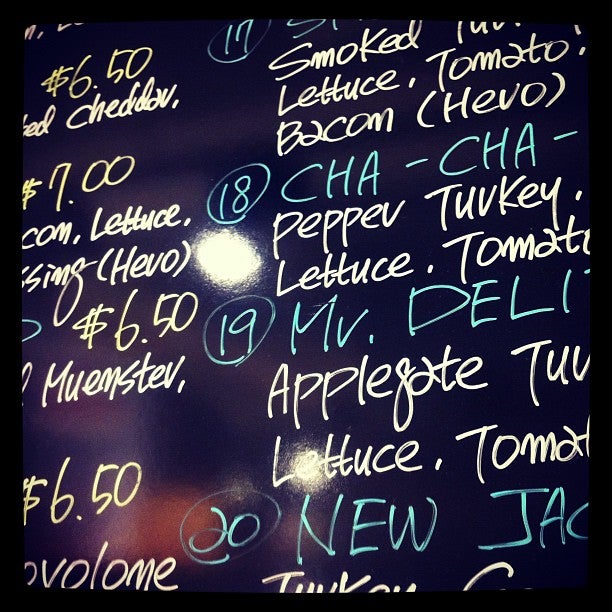 $6.50
Cheddar.
$7.00
Lettuce.
(Hero)
$6.50
Muenster.
$6.50
17
Smoked
Lettuce. Tomato.
Bacon (Hero)
18 CHA - CHA -
Pepper Turkey.
Lettuce. Tomato
19 Mr. DELI
Applegate Tur
Lettuce. Tomat
20 NEW JAC
Turkey